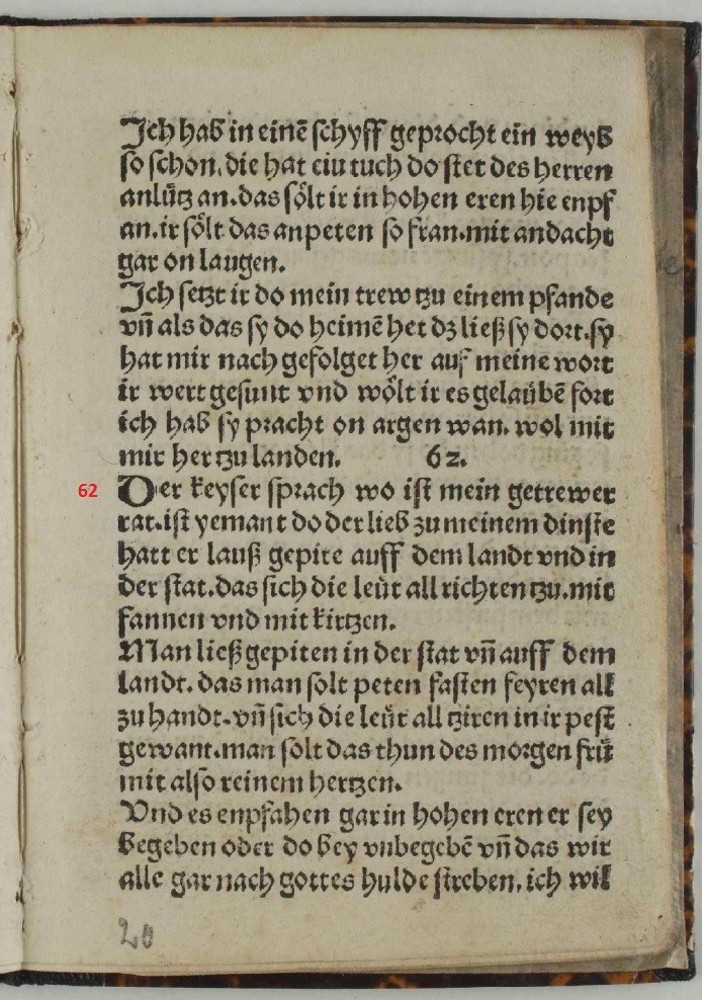 Ich hab in einē schyff geprocht ein weyb
so schon. die hat eiu tuch do stet des herren
anlütz an. das sölt ir in hohen eren hie enpf
an. ir sölt das anpeten so fran. mit andacht
gar on laugen.
Ich setzt ir do mein trew tzu einem pfande
vn̄ als das sy do heimē het dz ließ sy dort. sy
hat mir nach gefolget her auf meine wort
ir wert gesunt vnd wölt ir es gelaübē fort
ich hab sy pracht on argen wan. wol mit
mir her tzu landen. 62.
62 Der keyser sprach wo ist mein getrewer
rat. ist yemant do der lieb zu meinem dinste
hatt er lauß gepite auff dem landt vnd in
der stat. das sich die leüt all richten tzu. mit
fannen vnd mit kirtzen.
Man ließ gepiten in der stat vn̄ auff dem
landt. das man solt peten fasten feyren all
zu handt. vn̄ sich die leüt all tziren in ir pest
gewant. man solt das thun des morgen frü
mit also reinem hertzen.
Vnd es enpfahen gar in hohen eren er sey
begeben oder do bey vnbegebē vn̄ das wir
alle gar nach gottes hulde streben. ich wil
20